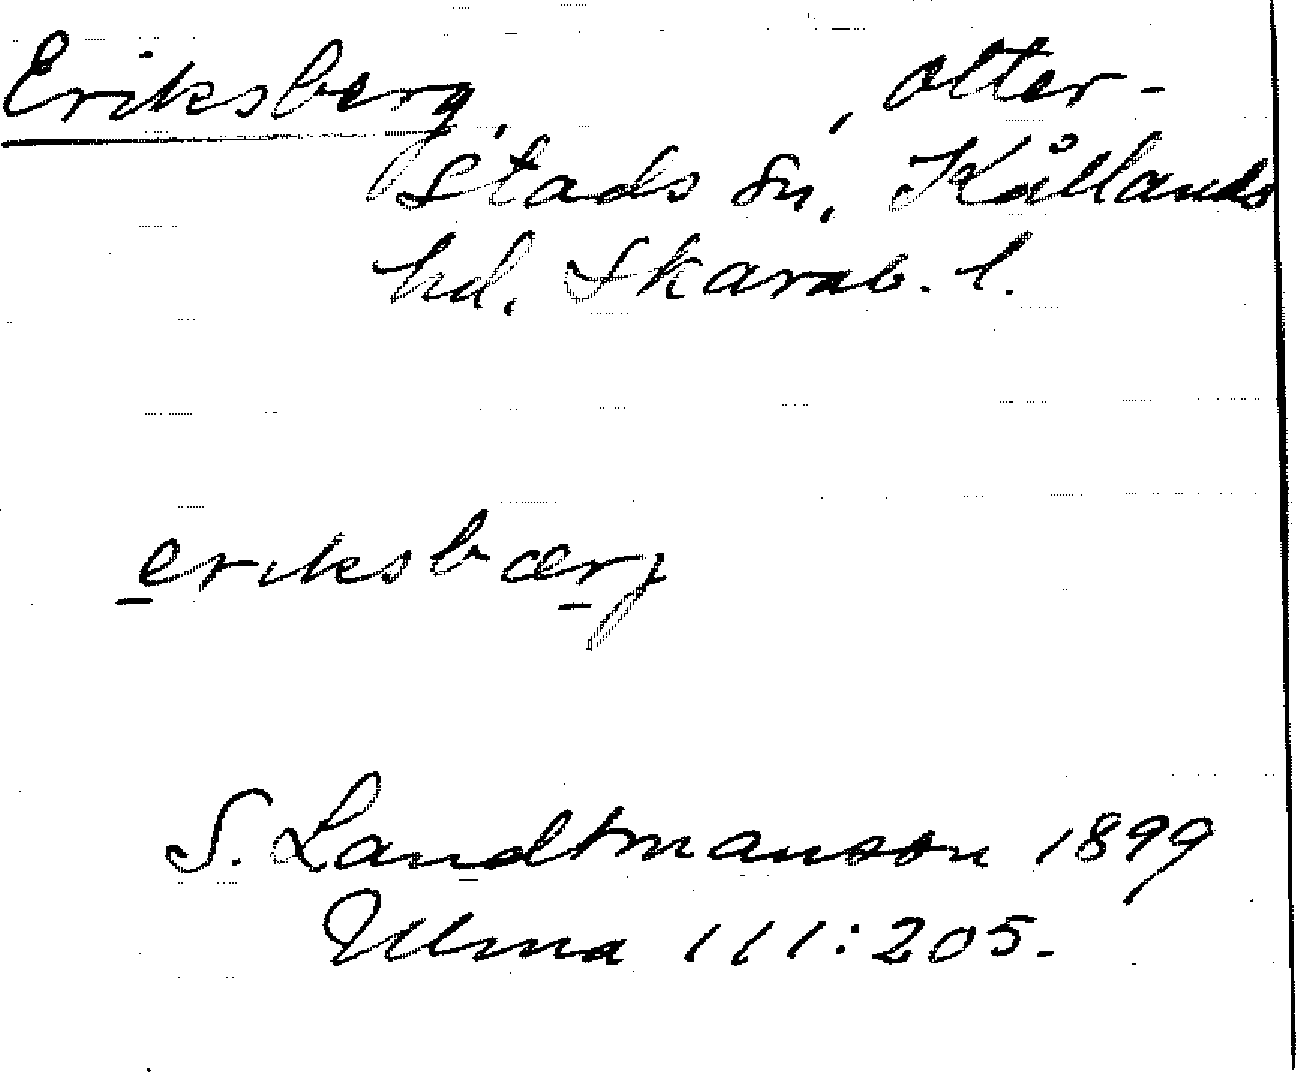 Eriksberg, , Otter-
stads sn, Kållands
hd. Skarab. l.
eriksbærj
S. Landtmanson 1899
Ulma 111:205.